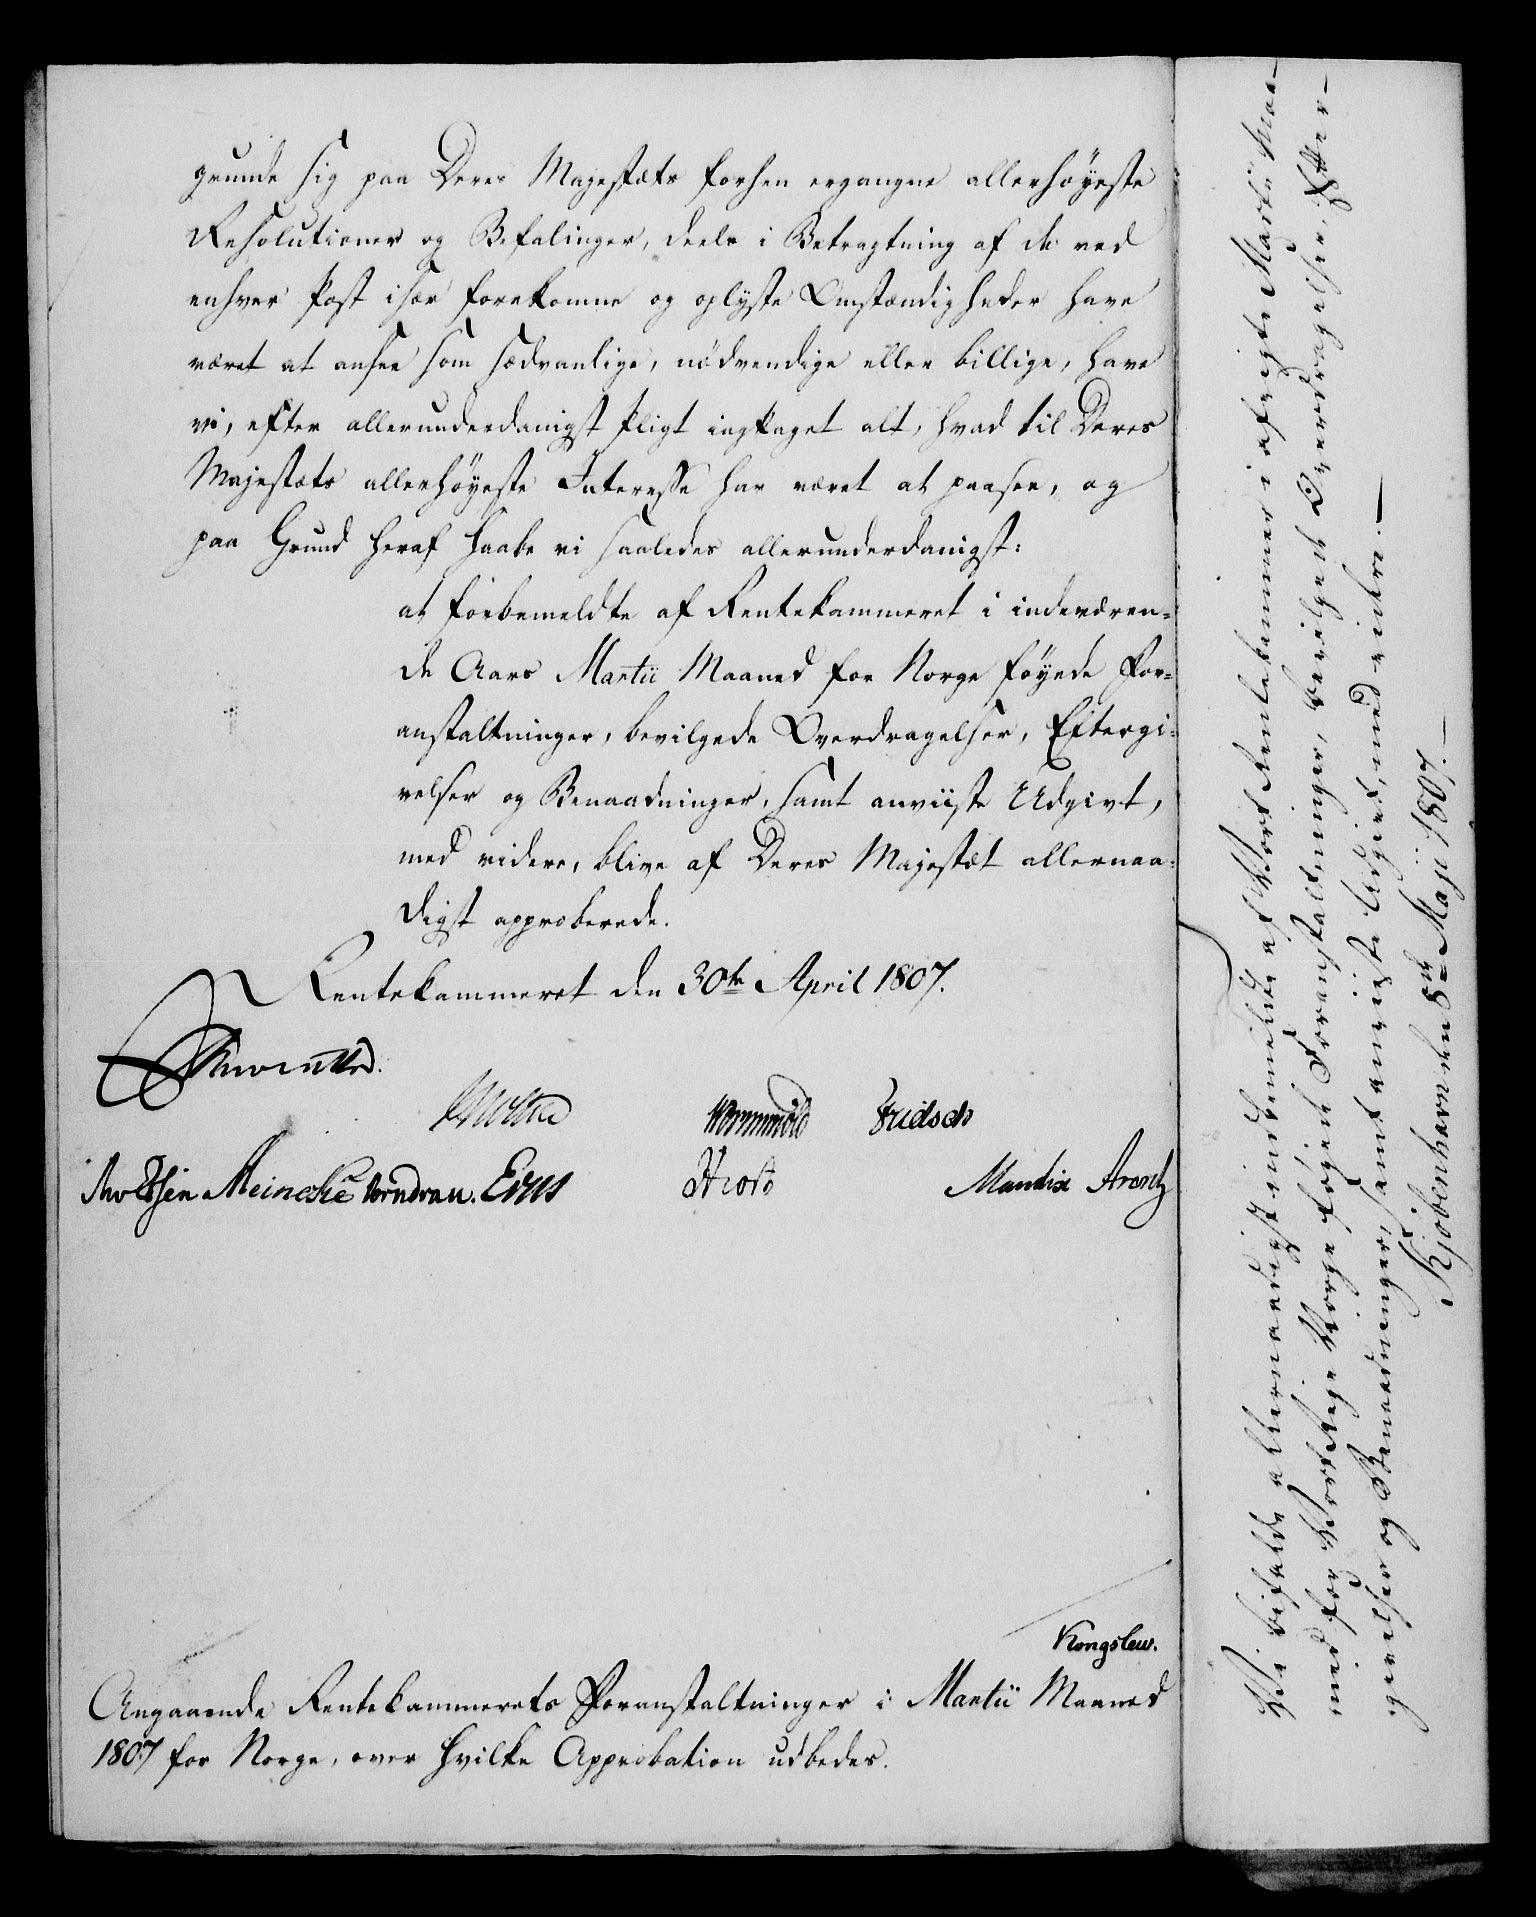 grunde sig paa Deres Majestæts forhen ergangne allerhöyeste
Resolutioner og Befalinger, deels i Betragtning af de ved
enhver Post især forekomne og oplyste Omstændigheder have
været at ansee som sædvanlige, nödvendige eller billige, have
vi, efter allerunderdanigst Pligt iagttaget alt, hvad til Deres
Majestæts allerhöyeste Interesse har været at paasee, og
paa Grund heraf haabe vi saaledes allerunderdanigst:
at forbemeldte af Rentekammeret i indeværen-
de Aars Martii Maaned for Norge föyede For-
anstaltninger, bevilgede Overdragelser, Eftergi-
velser og Benaadninger, samt anviiste Udgivt,
med videre, blive af Deres Majestæt allernaa-
digst approberede.
Rentekammeret den 30te April 1807.
Reventlou.
Moltke Wormskiold Fridsch
Meincke Vorndran. Erns Frost Mandix Arentz
Kongslew.
Angaaende Rentekammerets Foranstaltninger i Martii Maaned
1807 for Norge, over hvilke Approbation udbedes.
Vi bifalde allernaadigst indbemeldte af Vort Rentekammer i afvigte Martii Maa-
ned for Vort Rige Norge föyede Foranstaltninger, bevilgede Overdragelser, Efter-
givelser og Benaadninger, samt anviiste Udgivt, med videre. —
Kjöbenhavn den 8de Maji 1807. —